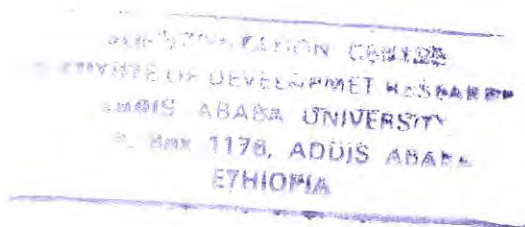 CENTRE
OF DEVELOPMET RESEARCH
ADDIS ABABA UNIVERSITY
BOX 1176, ADDIS ABABA
ETHIOPIA